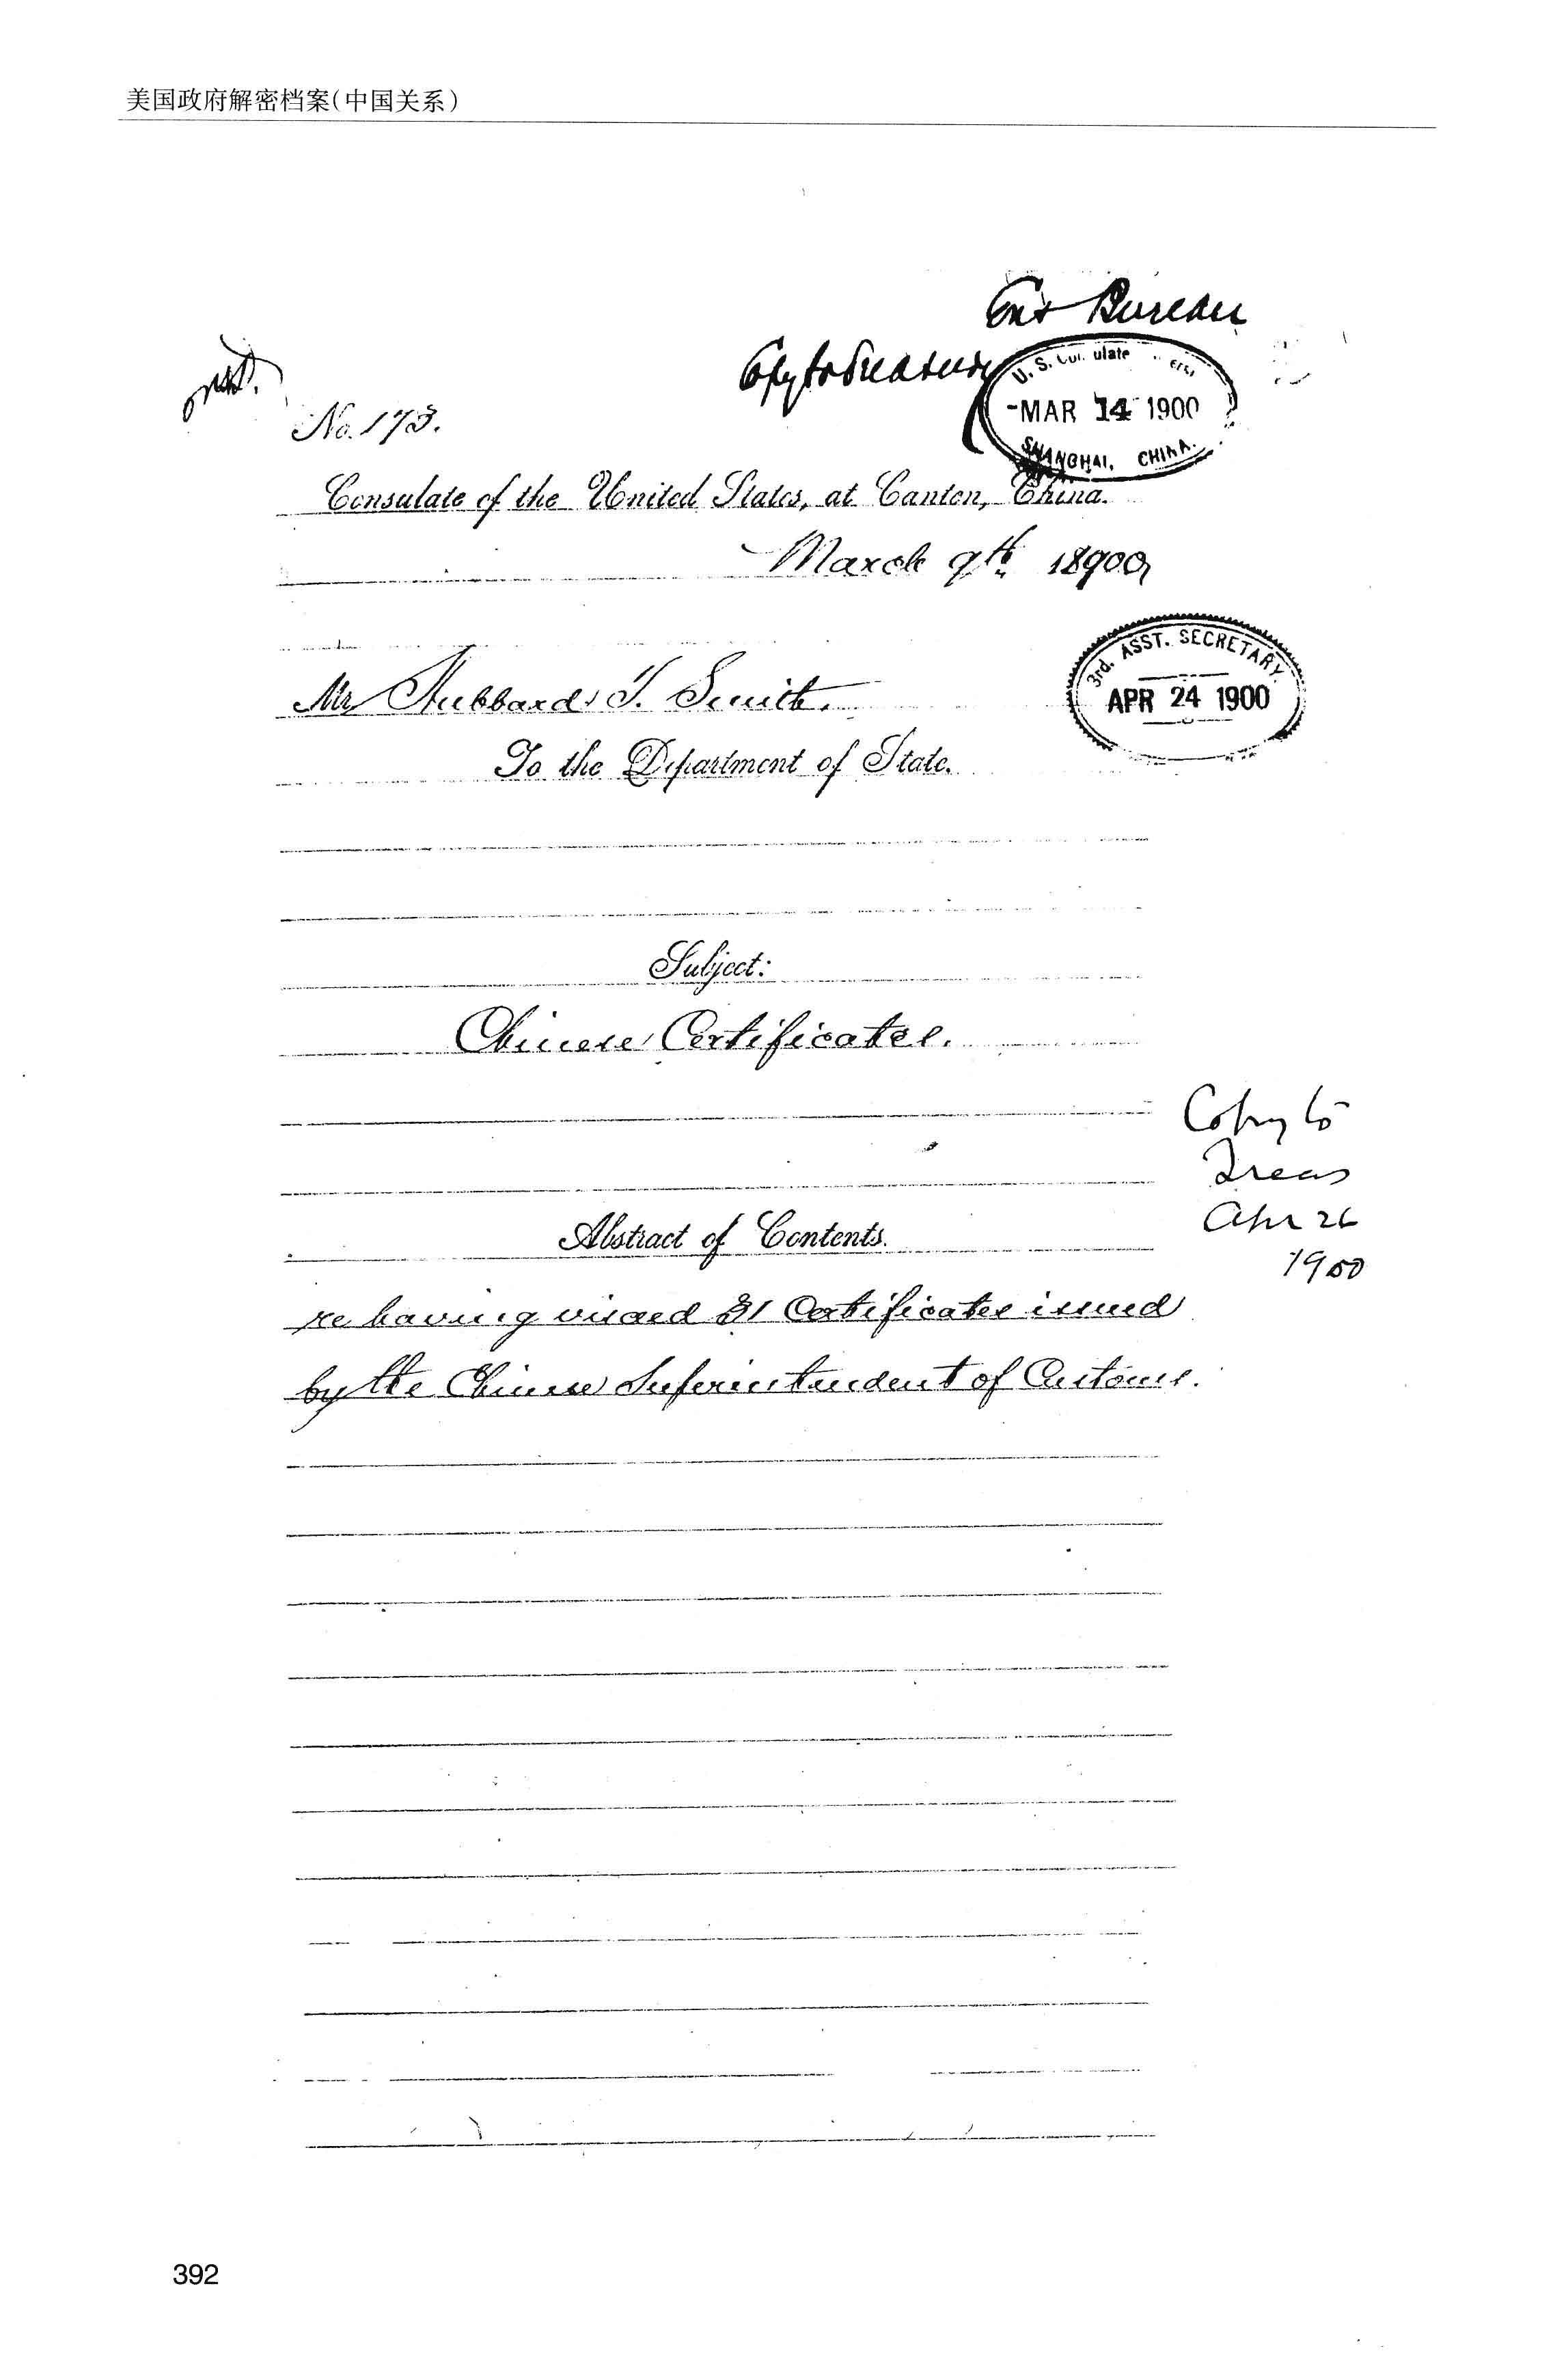 美国政府解密档案(中国关系)
Bureau
Copy to Treasury
U. S. ulate
MAR 14 1900
SHANGHAI, CHINA.
No. 173.
Consulate of the United States, at Canton, China.
March 9th 1900
3rd. ASST. SECRETARY.
APR 24 1900
Mr Hubbard T. Smith.
To the Department of State.
Subject:
Chinese Certificates.
Copy to
Treas
Apr 26
1900
Abstract of Contents.
re having visaed 31 Certificates issued
by the Chinese Superintendent of Customs.
392